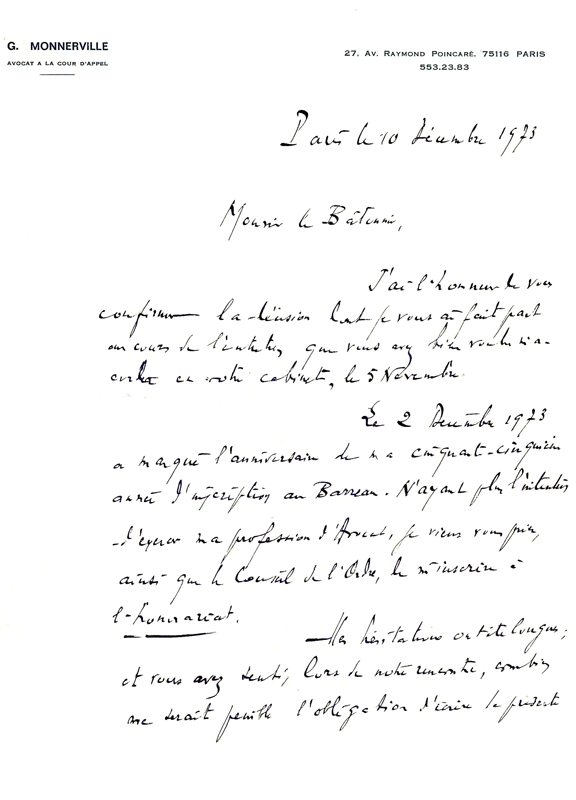 G. MONNERVILLE
AVOCAT A LA COUR D'APPEL
27, AV. RAYMOND POINCARÉ, 75116 PARIS
553.23.83
Paris le 10 Décembre 1973
Monsieur le Bâtonnier,
J'ai l'honneur de vous
confirmer la décision dont je vous ai fait part
au cours de l'entretien que vous avez bien voulu m'a-
corder en votre cabinet, le 5 Novembre.
Le 2 Décembre 1973
a marqué l'anniversaire de ma cinquante-cinquième
année d'inscription au Barreau. N'ayant plus l'intention
d'exercer ma profession d'Avocat, je viens vous prier,
ainsi que le Conseil de l'Ordre, de m'inscrire à
l'honorariat.
Mes hésitations ont été longues;
et vous avez senti, lors de notre rencontre, combien
me serait pénible l'obligation d'écrire la présente